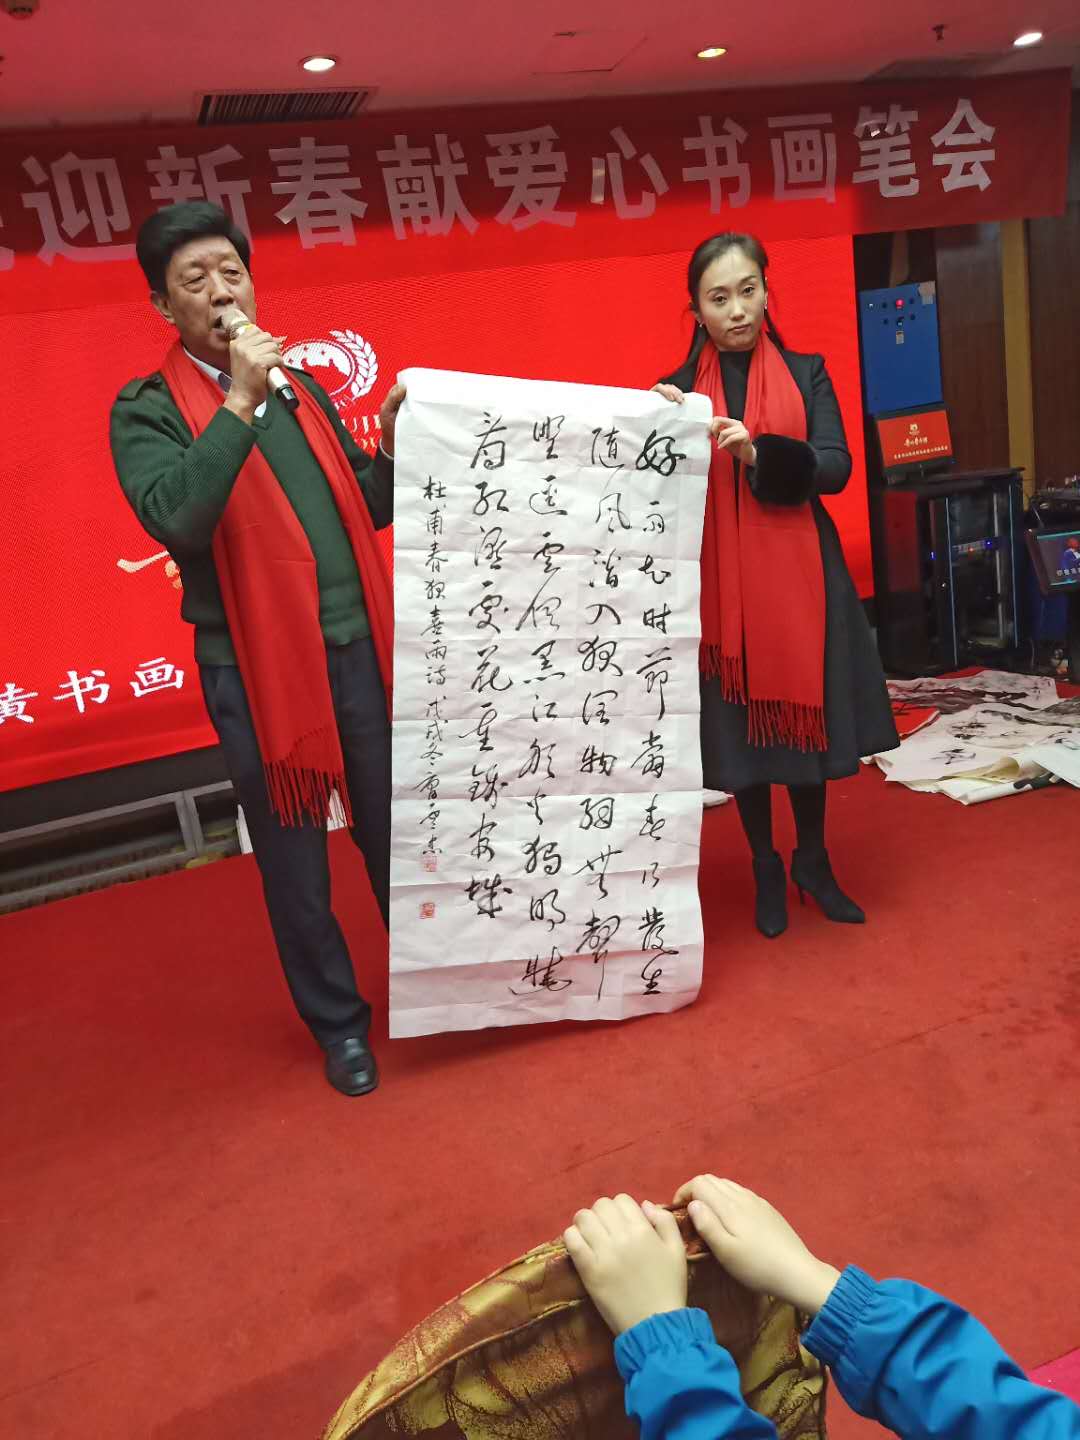 迎新春献爱心书画笔会
黄书画
好雨知时节当春乃發生
随风潜入夜润物细無聲
野逕雲俱黑江船火獨明曉
看红濕處花重錦官城
杜甫春夜喜雨诗 戊戌冬曹雲杰